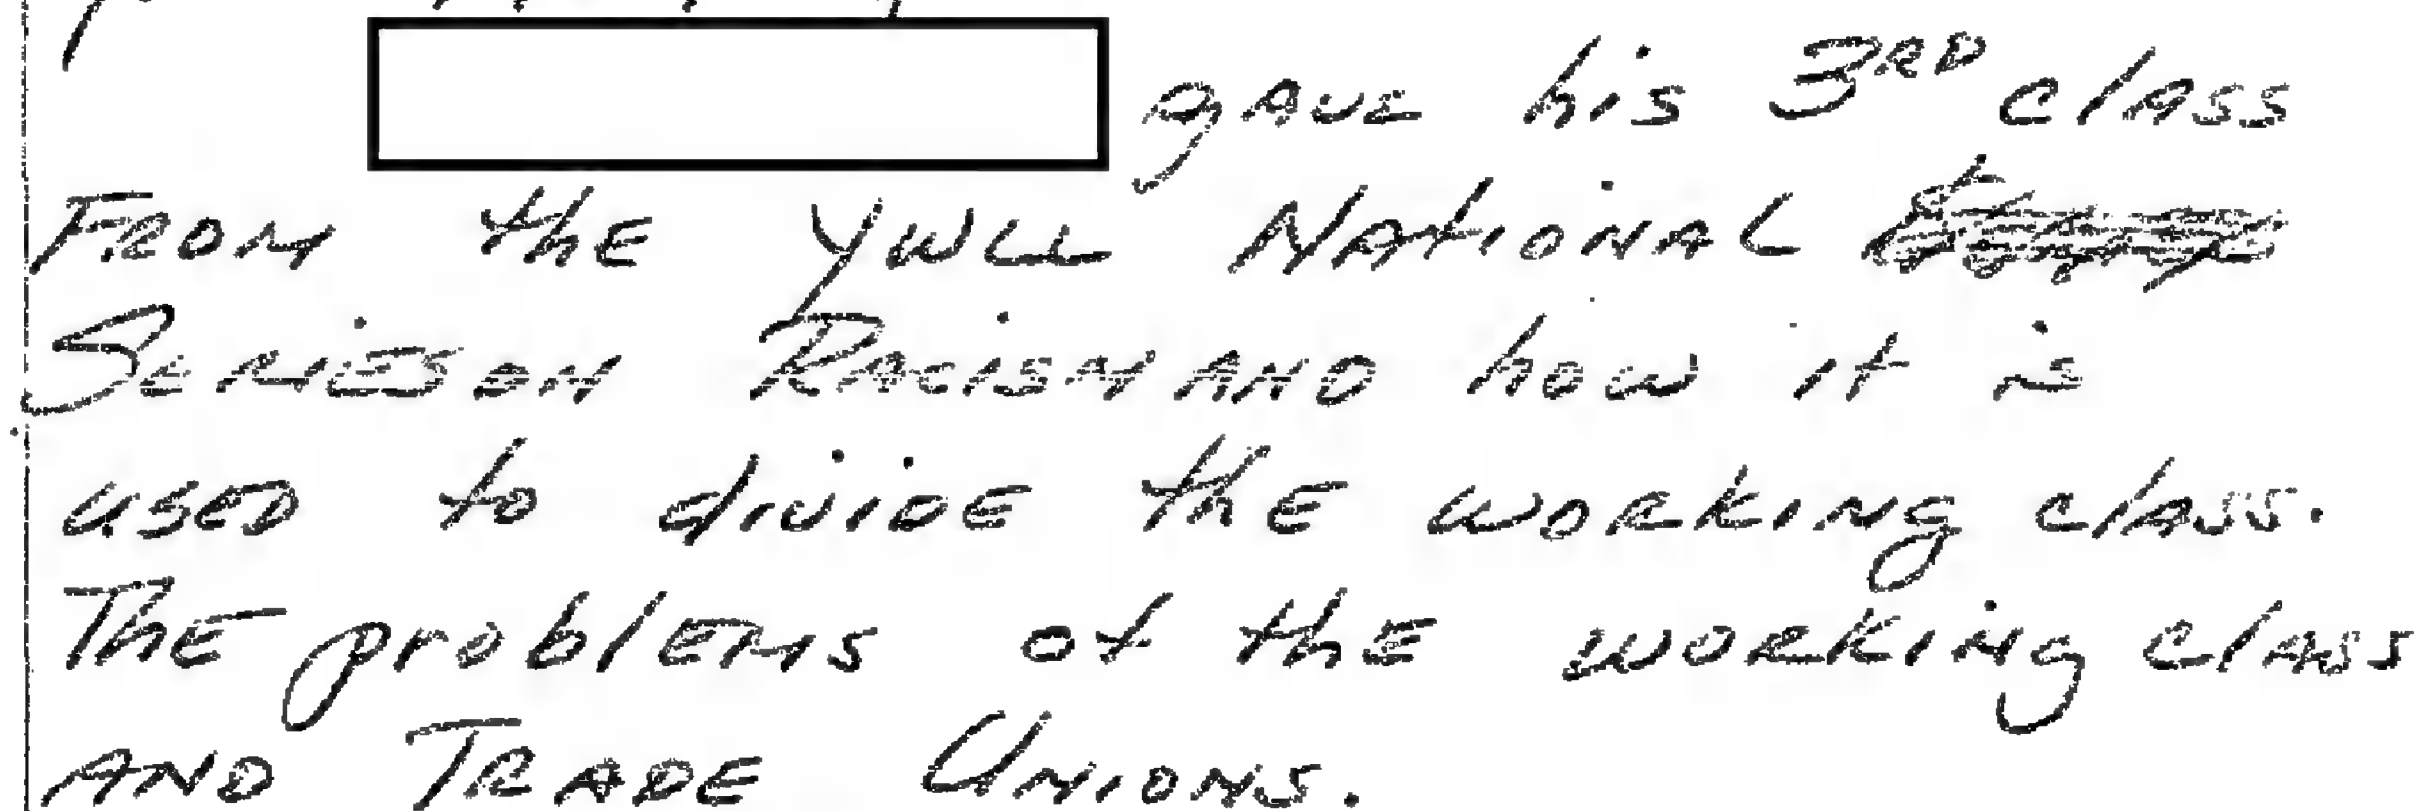 gave his 3RD class
From the YWLL National
Series on Racism and how it is
used to divide the working class.
The problems of the working class
and Trade Unions.